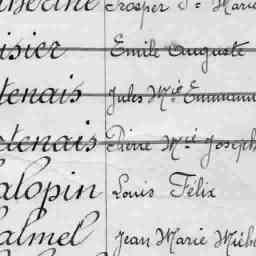 therine Prosper Jn Marie
isier Emile Auguste
tenais Jules Mie Emmanu
rtenais Pierre Mie Joseph
alopin Louis Félix
almel Jean Marie Mich